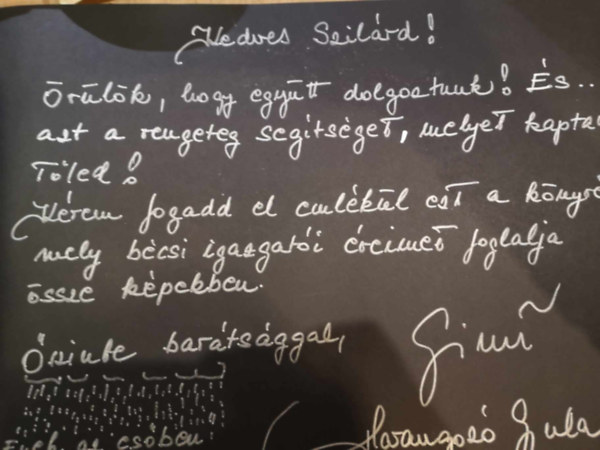 Kedves Szilárd!
Örülök, hogy együtt dolgoztunk! És..
azt a rengeteg segítséget, melyet kapta
Tőled!
Kérem fogadd el emlékül ezt a könyv
mely bécsi igazgatói éveimet foglalja
össze képekben.
Őszinte barátsággal,
Harangozó Gyula
Ezek az esőben